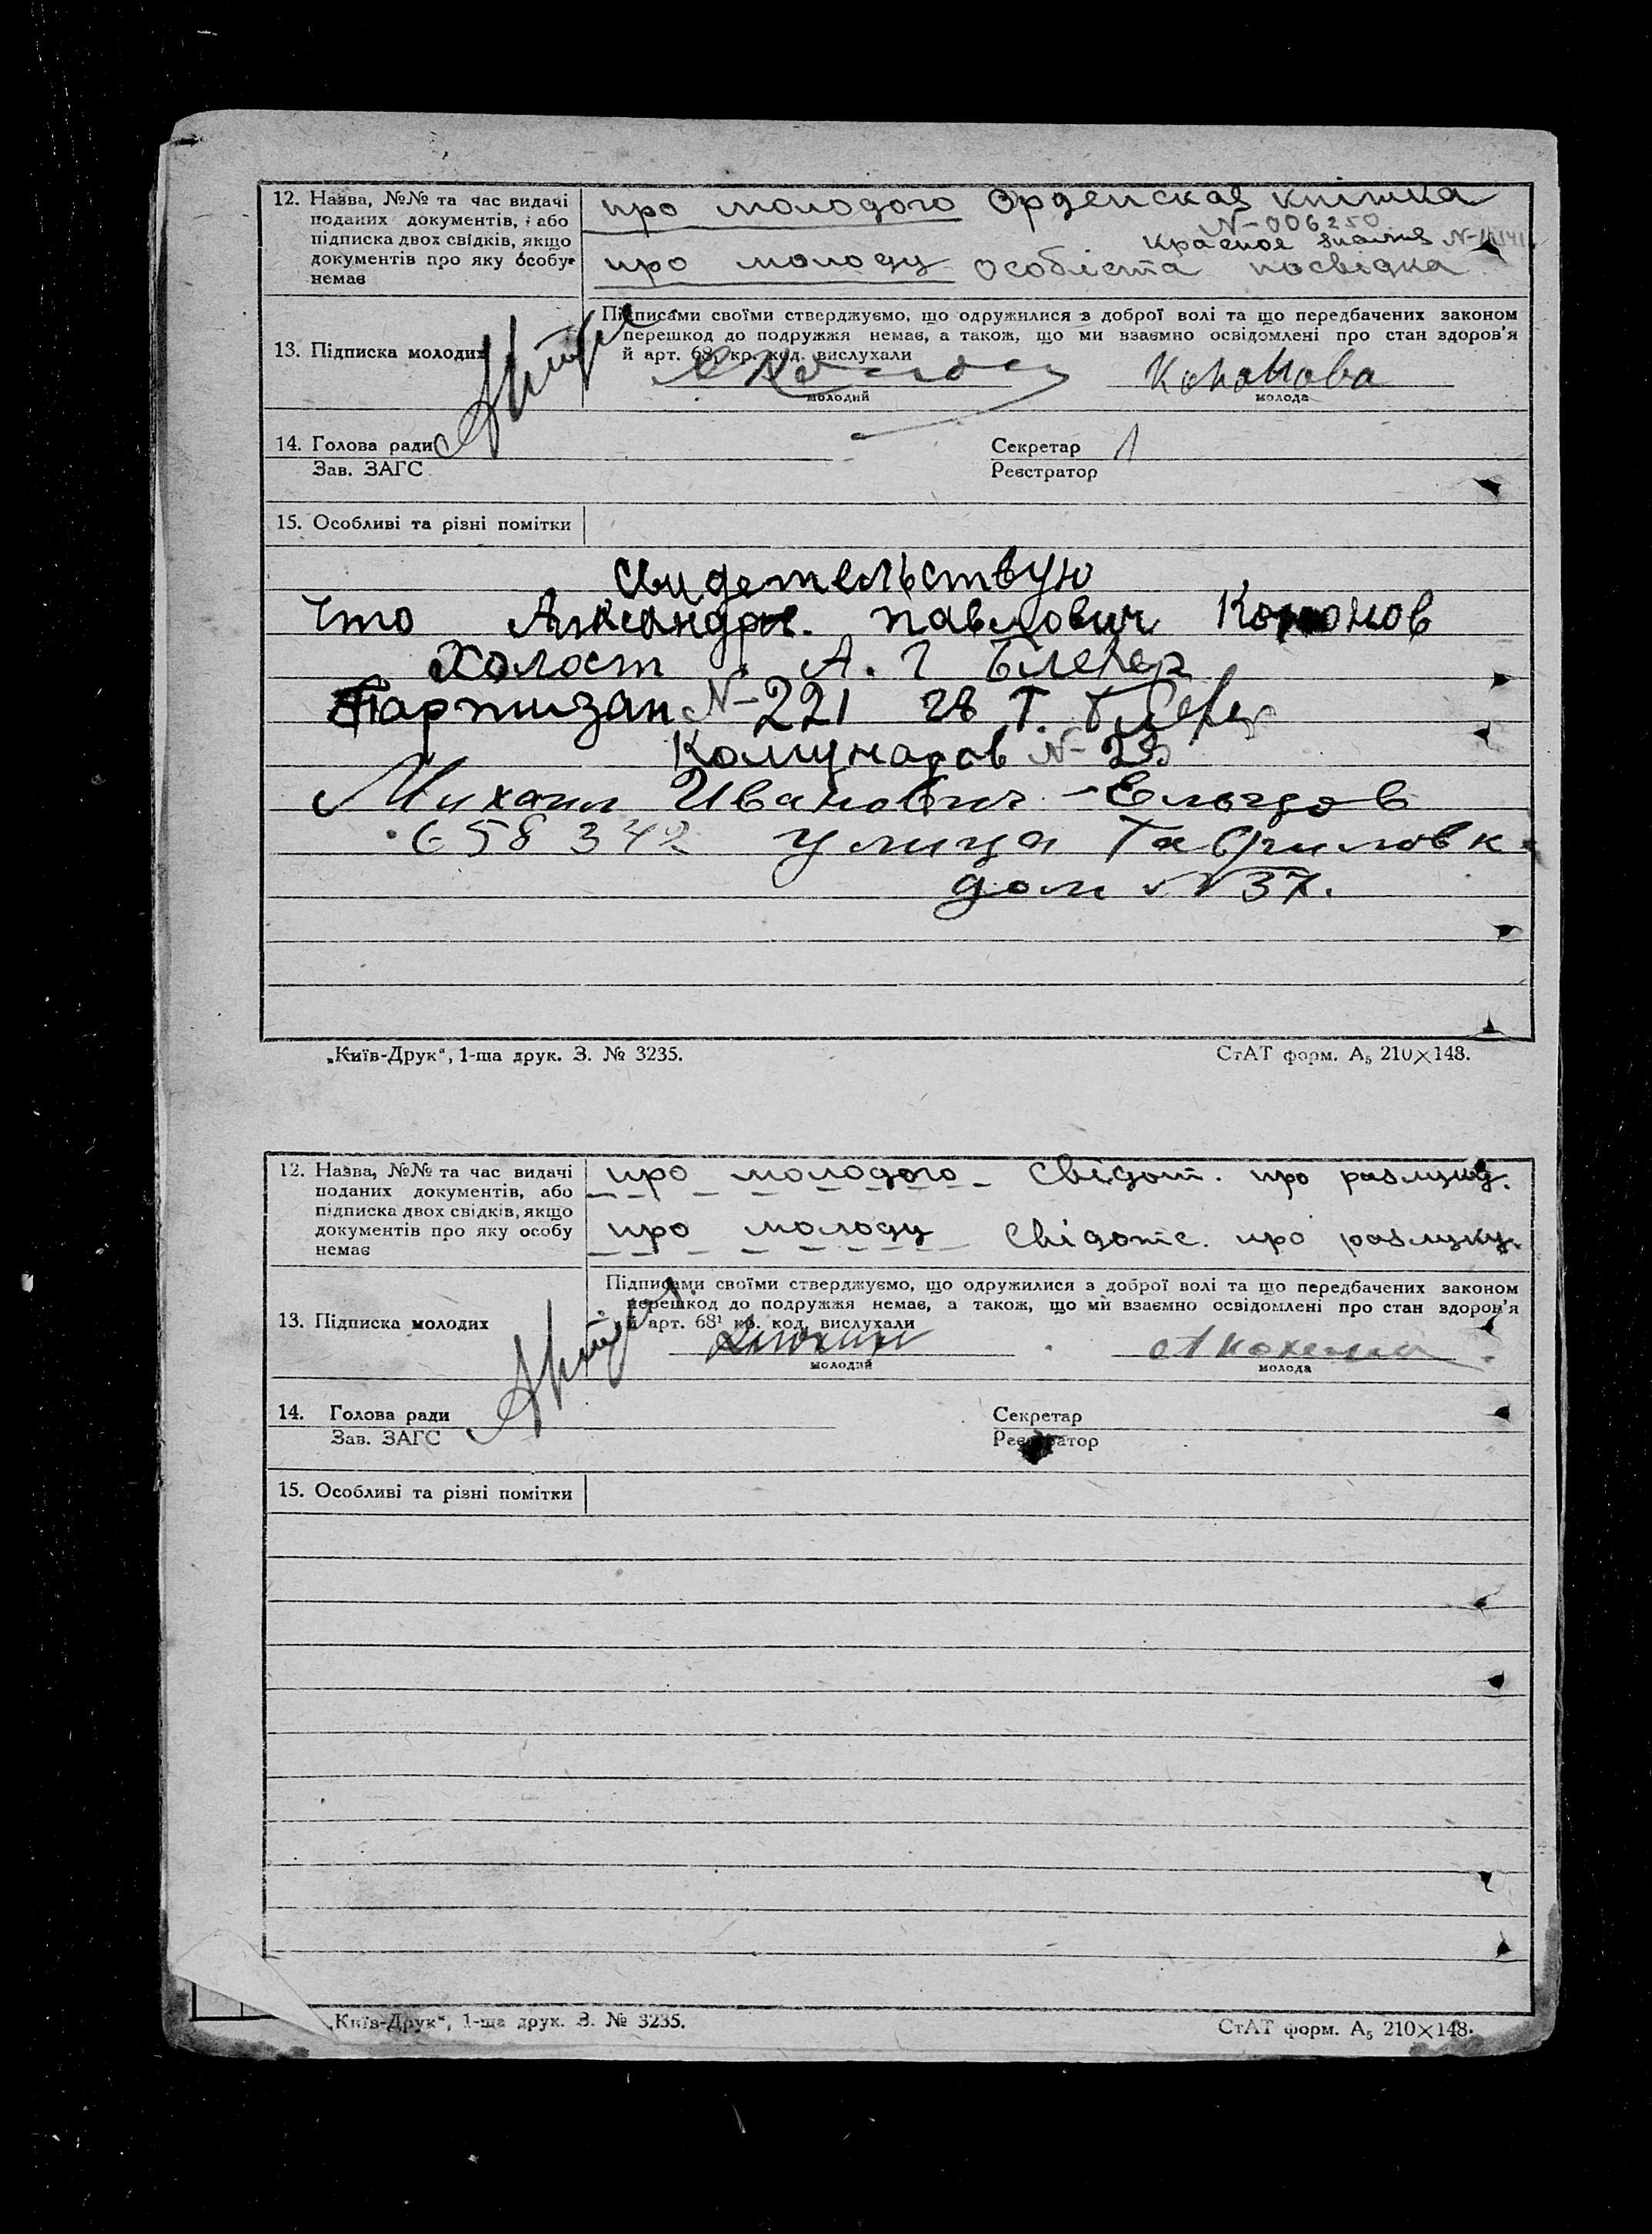 12. Назва, №№ та час видачі
поданих документів, або
підписка двох свідків, якщо
документів про яку особу
немає
про молодого Орденская книжка
N-006250
Красное знамя
про молоду особіста посвідка
13. Підписка молодих
Підписами своїми стверджуємо, що одружилися з доброї волі та що передбачених законом
перешкод до подружжя немає, а також, що ми взаємно освідомлені про стан здоров'я
й арт. 68¹ кр. код. вислухали
Кононова
молодий
молода
14. Голова ради
Зав. ЗАГС
Секретар
Реєстратор
15. Особливі та різні помітки
Свидетельствую
что Александр павлович Кононов
Холост А. Г Блехер
Партизан N-221
Комунаров N-23
Михаил Иванович Ельцов
658342 улица Гавриловк
дом N 37.
„Київ-Друк“, 1-ша друк. З. № 3235.
СтАТ форм. А₅ 210×148.
12. Назва, №№ та час видачі
поданих документів, або
підписка двох свідків, якщо
документів про яку особу
немає
про молодого Свідот. про разлуку.
про молоду Свідотс. про разлуку.
13. Підписка молодих
Підписами своїми стверджуємо, що одружилися з доброї волі та що передбачених законом
перешкод до подружжя немає, а також, що ми взаємно освідомлені про стан здоров'я
й арт. 68¹ кр. код. вислухали
молодий
молода
14. Голова ради
Зав. ЗАГС
Секретар
Реєстратор
15. Особливі та різні помітки
„Київ-Друк“, 1-ша друк. З. № 3235.
СтАТ форм. А₅ 210×148.